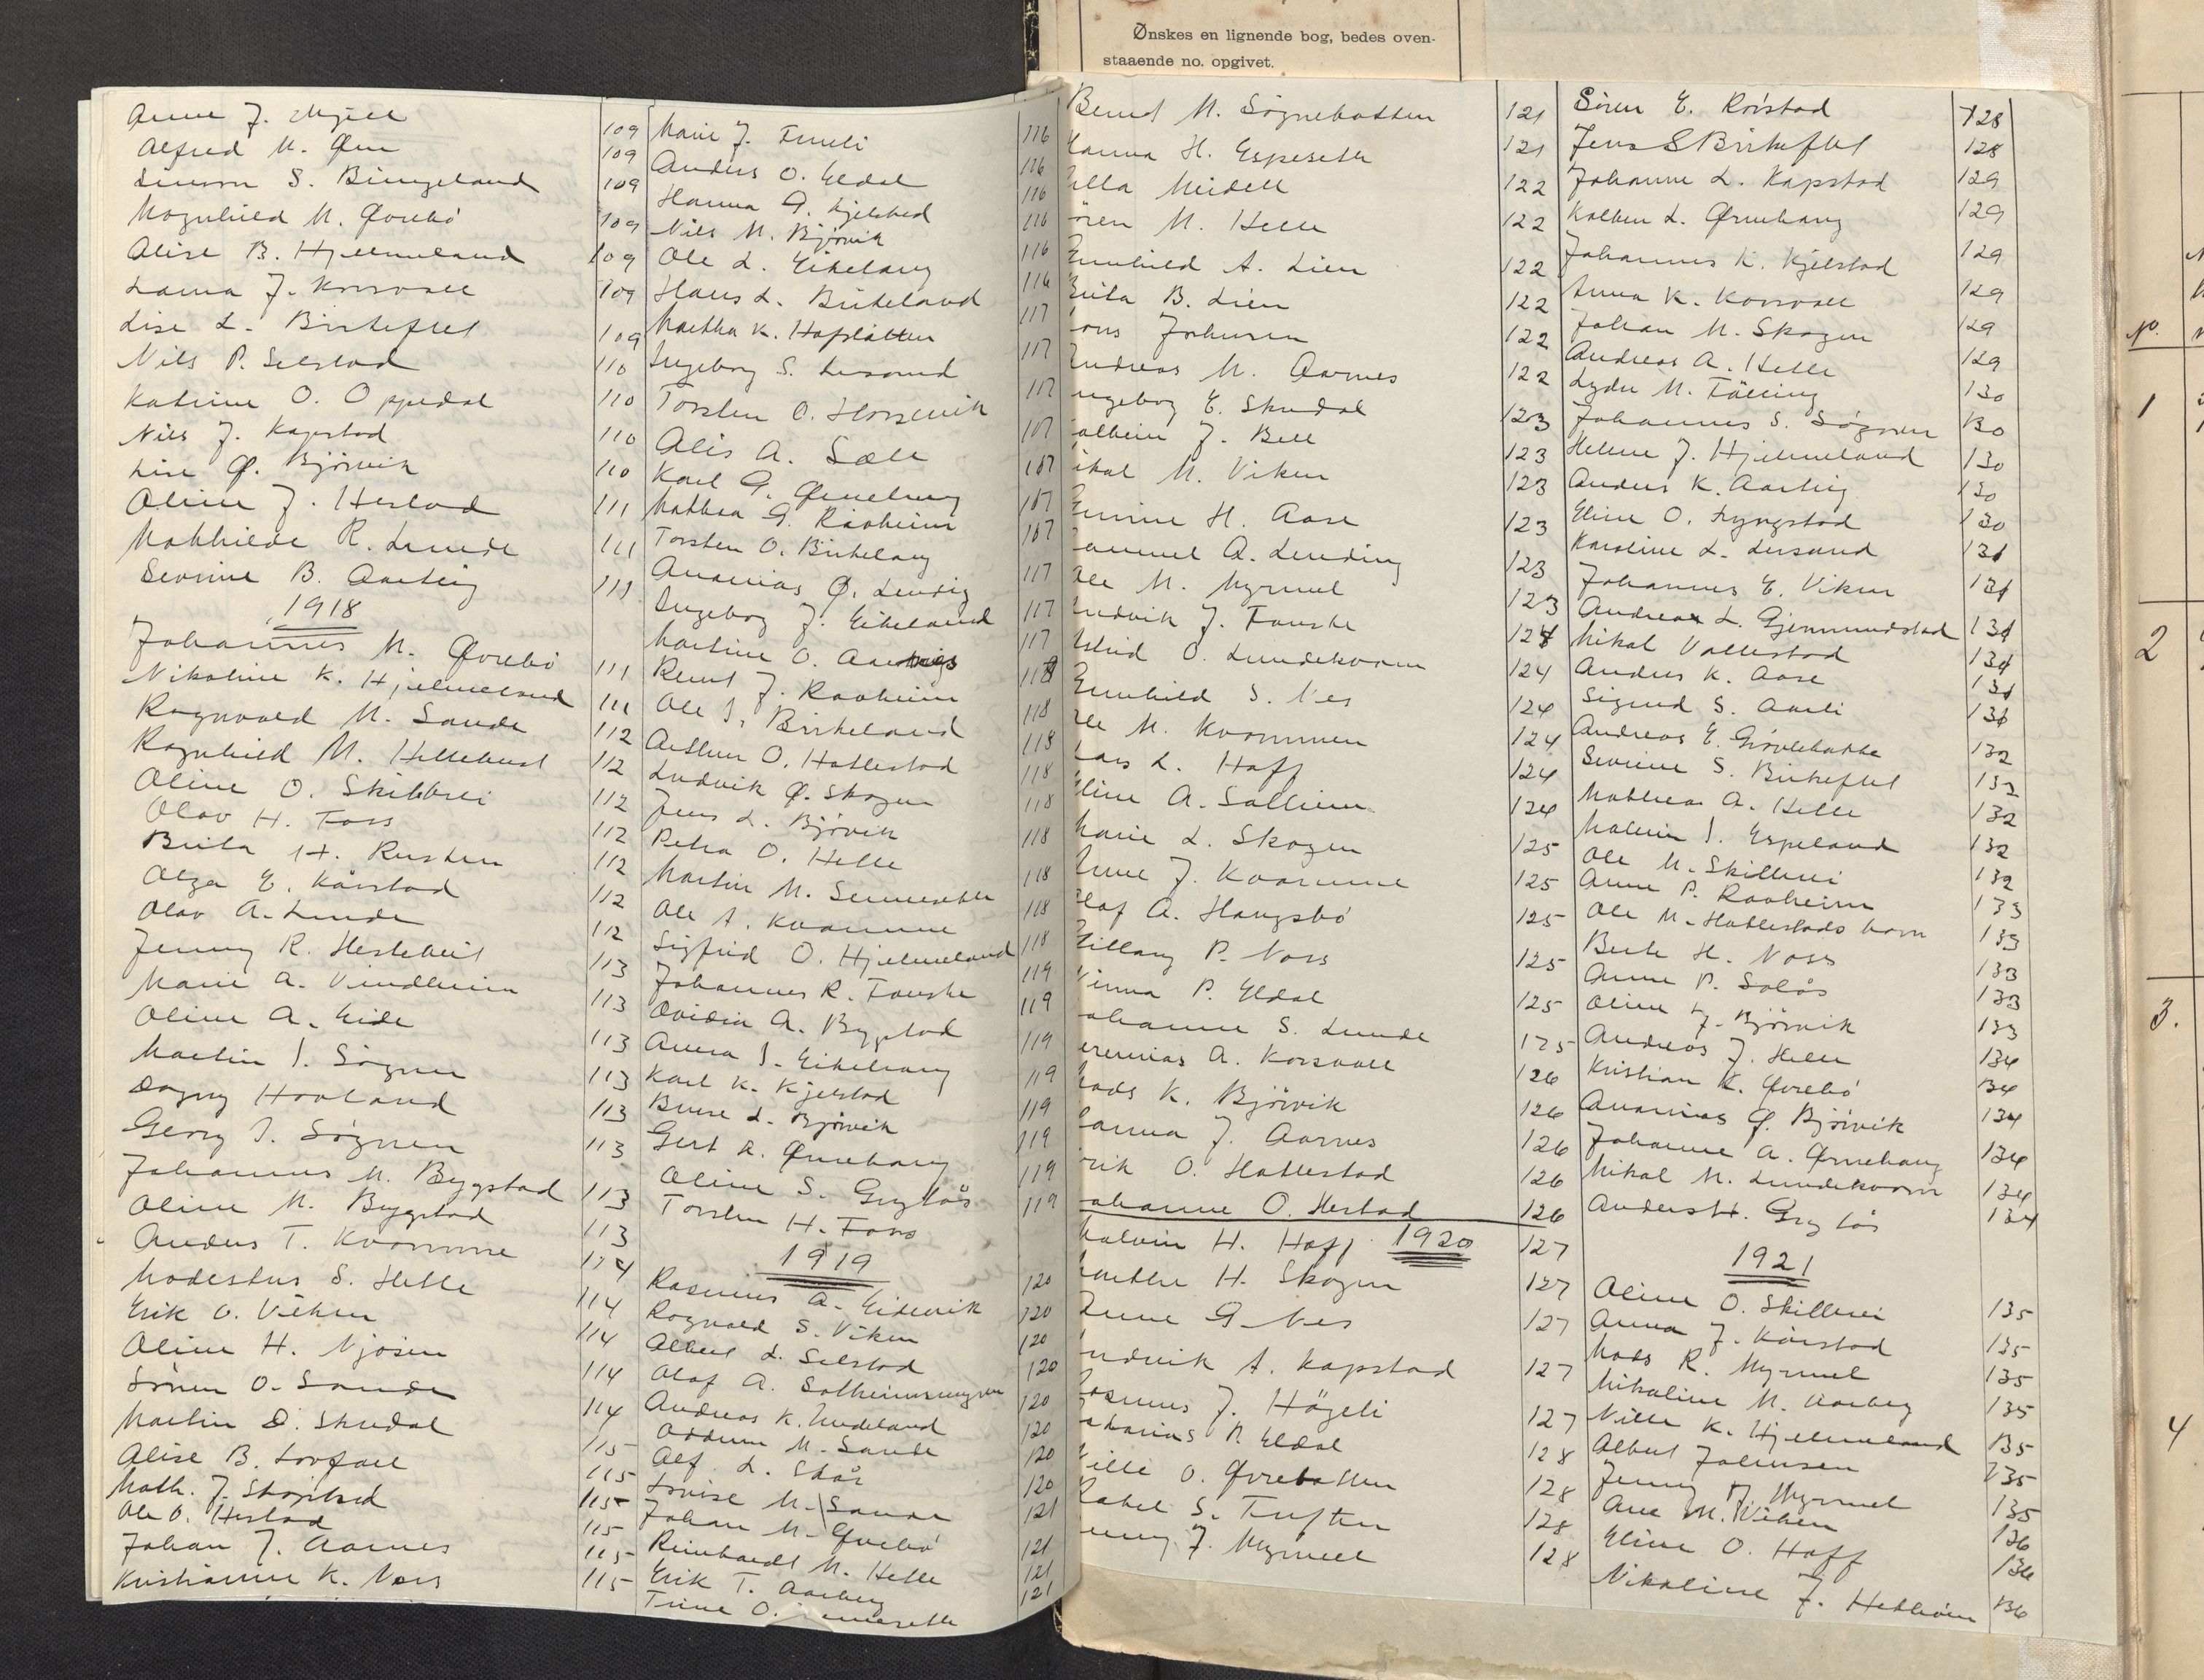 Ønskes en lignende bog, bedes oven-
staaende no. opgivet.
Anne J. Myren
Alfred M. Øen 109
Simon S. Bungeland 109
Magnhild M. Øvrebö 109
Alise B. Hjelmeland 109
Laura J. Korsvoll 109
Lise L. Birkeflet 109
Nils P. Selstad 109
Katrine O. Oppedal 110
Nils J. Kapstad 110
Lise Ø. Bjørvik 110
Oline J. Hestad 110
Mathilde R. Lunde 111
Severine B. Aarberg 111
1918 111
Johannes M. Øvrebö
Nikoline K. Hjelmeland 111
Ragnvald M. Sande 111
Ragnhild M. Hellebust 112
Oline O. Skilbrei 112
Olav H. Foss 112
Brita H. Rusten 112
Olga E. Kårstad 112
Olav A. Lunde 112
Jenny R. Hestebeit 112
Marie A. Vindheim 113
Oline A. Eide 113
Martin J. Søgnen 113
Dagny Hovland 113
Georg J. Søgnen 113
Johannes M. Bygstad 113
Oline M. Bygstad 113
Anders T. Kvamme 113
Modestus S. Helle 114
Erik O. Viken 114
Oline H. Njøsen 114
Sören O. Sande 114
Martin D. Skredal 114
Alise B. Lovfall 115
Math. J. Skorstad 115
Ole O. Hestad 115
Johan J. Aarnes 115
Kristianne K. Nors 115
115
Marie J. Timli 116
Anders O. Eldal 116
Hanna A. Kjelstad 116
Nils M. Bjørvik 116
Ole L. Eikelang 116
Hans L. Birkeland 116
Martha K. Hafslåtten 117
Ingeborg S. Lirsand 117
Torsten O. Horsevik 117
Alis A. Sæle 107
Karl G. Ørnehaug 107
Mathea G. Råheim 107
Torsten O. Birkelang 107
Ananias Ø. Lendig 117
Ingeborg J. Eikeland 117
Martine O. Aarberg 117
Bernt J. Raaheim 118
Ole J. Birkeland 118
Arthur O. Hatlestad 118
Ludvik Ø. Skogen 118
Jens L. Bjövik 118
Petra O. Helle 118
Martin M. Sennesetle 118
Ole A. Kvamme 118
Sigfrid O. Hjelmeland 118
Johannes R. Fauske 119
Ovidia A. Bygstad 119
Anna J. Eikehaug 119
Karl K. Kjelstad 119
Borre L. Bjørvik 119
Gert A. Ørnehaug 119
Oline S. Grytås 119
Torsten H. Foss 119
1919
Rasmus A. Eidevik 120
Ragnvald S. Viken 120
Albert L. Selstad 120
Olaf A. Solheimsmyren 120
Andreas K. Undeland 120
Oddmu M. Sande 120
Alf L. Skår 120
Lovise M. Sande 120
Johan M. Øvrebö 121
Reinhardt M. Helle 121
Erik T. Aarberg 121
Trine O. 121
Bernt M. Søgnebotten 121
Hanna H. Espeseth 121
Milla Meidell 122
ören M. Helle 122
Gunhild A. Lien 122
Brita B. Lien 122
ons Johnsen 122
Andreas M. Aarnes 122
ngeborg E. Skredal 123
alheim J. Bell 123
ikal M. Viken 123
Gurine H. Aase 123
amuel A. Lending 123
Ole M. Myrmel 123
Ludvik J. Fauske 124
Astrid O. Lundekvam 124
Gunhild S. Nes 124
Ole M. Kvammen 124
Lars L. Haff 124
Eline A. Solheim 124
Marie L. Skogen 125
Anne J. Kvamme 125
Olaf A. Haugsbö 125
Hillary P. Nors 125
Ninna P. Eldal 125
ohanne S. Lunde 125
eremias A. Korsvoll 126
Mads K. Bjørvik 126
anna J. Aarnes 126
rik O. Hatlestad 126
ohanne O. Hestad 126
Malvin H. Haff 1920 127
arthe H. Skogen 127
Anne G. Nes 127
udvik A. Kapstad 127
asmus J. Högeli 127
akarias P. Eldal 128
Nille O. Øvrebotten 128
Rakel S. Tuften 128
enny J. Myrmel 128
Sören E. Rörstad 128
Jens S Birkeflet 128
Johanne L. Kapstad 129
Kolben L. Ørnehaug 129
Johannes K. Kjelstad 129
Anna K. Korsvoll 129
Johan M. Skogen 129
Andreas A. Helle 129
Lyder M. Tälling 130
Johannes S. Søgnen 130
Helene J. Hjelmeland 130
Anders K. Aarberg 130
Eline O. Lyngstad 130
Karoline L. Lersand 131
Johannes E. Viken 131
Andreas L. Gjemmundstad 131
Mikal Vallestad 131
Anders K. Aase 131
Sigurd S. Aarli 131
Andreas E. Grövlebakke 132
Severine S. Birkeflet 132
Mathea A. Helle 132
Malene J. Espeland 132
Ole M. Skilbrei 132
Anne P. Raaheim 133
Ole M. Hatlestads barn 133
Berte H. Noss 133
Anne P. Solås 133
Oline J. Bjørvik 133
Andreas J. Helle 134
Kristian K. Øvrebö 134
Ananias Ø. Bjørvik 134
Johanne A. Ørnehaug 134
Mikal M. Lundekvam 134
Anders H. Grytås 134
1921
Oline O. Skilbrei 135
Anna J. Kårstad 135
Mads R. Myrmel 135
Nikoline M. Aarberg 135
Nille K. Hjelmeland 135
Albert Johnsen 135
Jenny J. Myrmel 135
Ane M. Viken 136
Eline O. Haff 136
Nikoline J. Hetleim 136
No.
1
2
3.
4